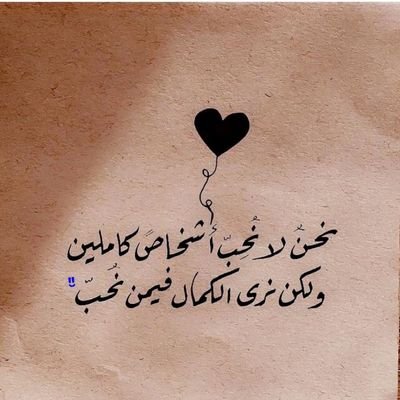 نحنُ لا نُحِبّ أشخاصً كاملين
ولكن نرى الكمال فيمن نُحبّ !!